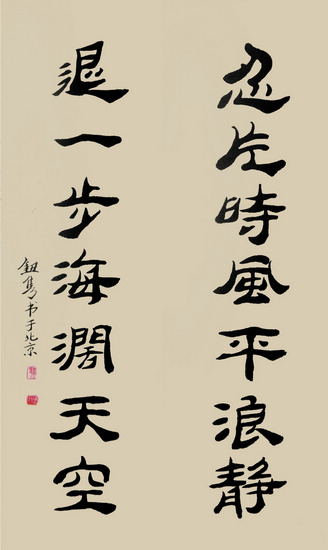 忍片時風平浪静
退一步海濶天空
鈕隽书于北京